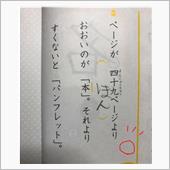 ページが 四十九ページより
ほん
おおいのが「本」。それより
すくないと「パンフレット」。